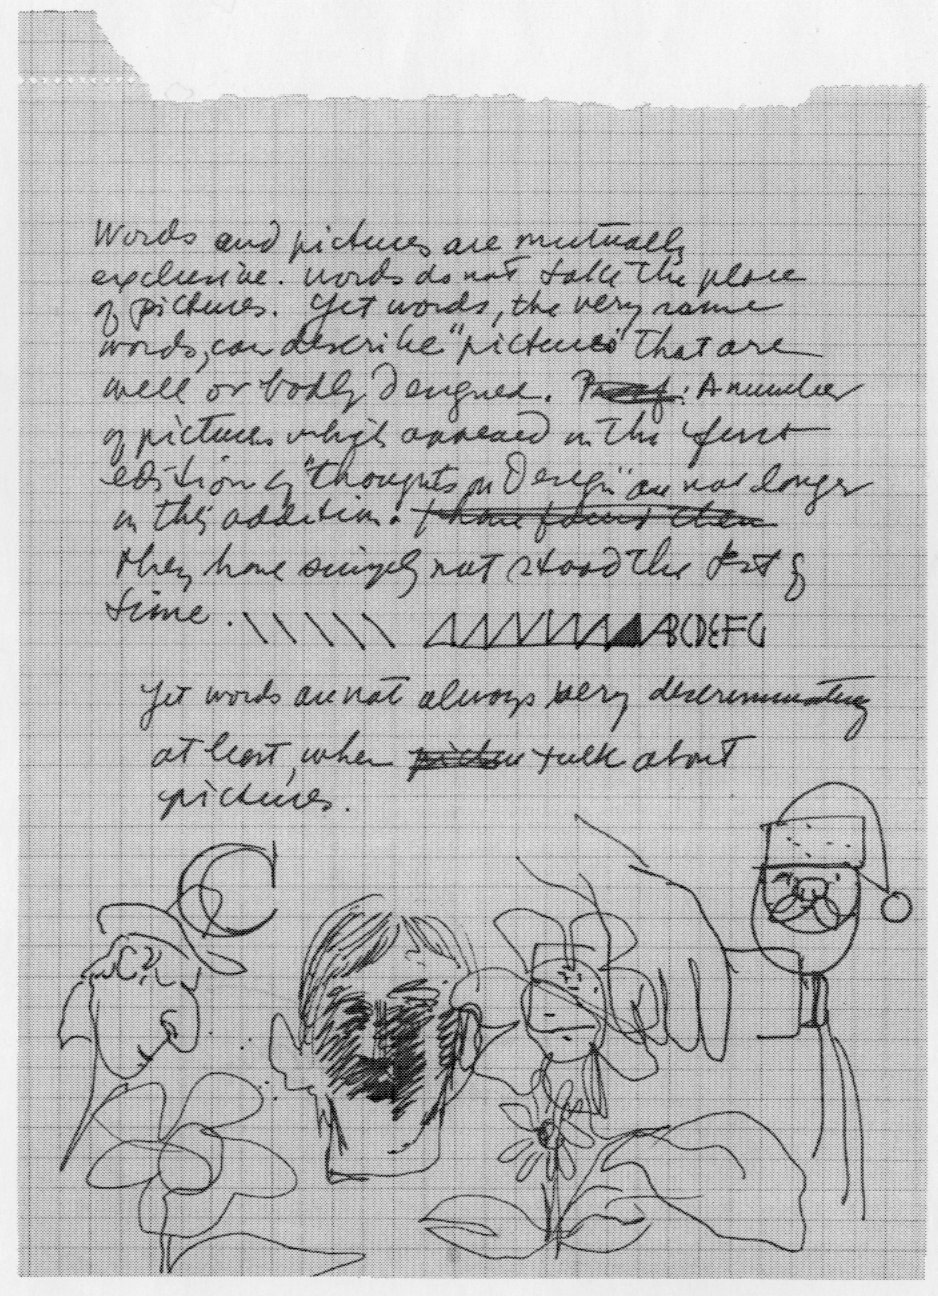 Words and pictures are mutually
exclusive. Words do not take the place
of pictures. Yet words, the very same
words, can describe "pictures" that are
well or badly designed. Proof: A number
of pictures which appeared in the first
edition of "thoughts on Design" are not longer
in this addition. I have found them
they have simply not stood the test of
time.
ABCDEFG
Yet words are not always very descriminating
at least, when talk about
pictures.
C